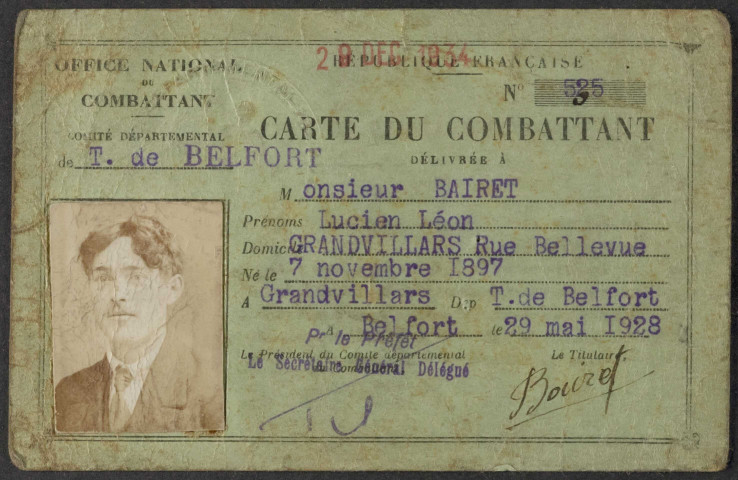 28 DEC 1934
OFFICE NATIONAL
DU
COMBATTANT
COMITÉ DÉPARTEMENTAL
de T. de BELFORT
RÉPUBLIQUE FRANÇAISE
N° 525
CARTE DU COMBATTANT
DÉLIVRÉE À
Monsieur BAIRET
Prénoms Lucien Léon
Domicile GRANDVILLARS Rue Bellevue
Né le 7 novembre I897
A Grandvillars Dép T.de Belfort
A Belfort le 29 mai I928
Pr le Préfet
Le Président du Comité départemental
Le Secrétaire Général Délégué
Le Titulaire
Bairet